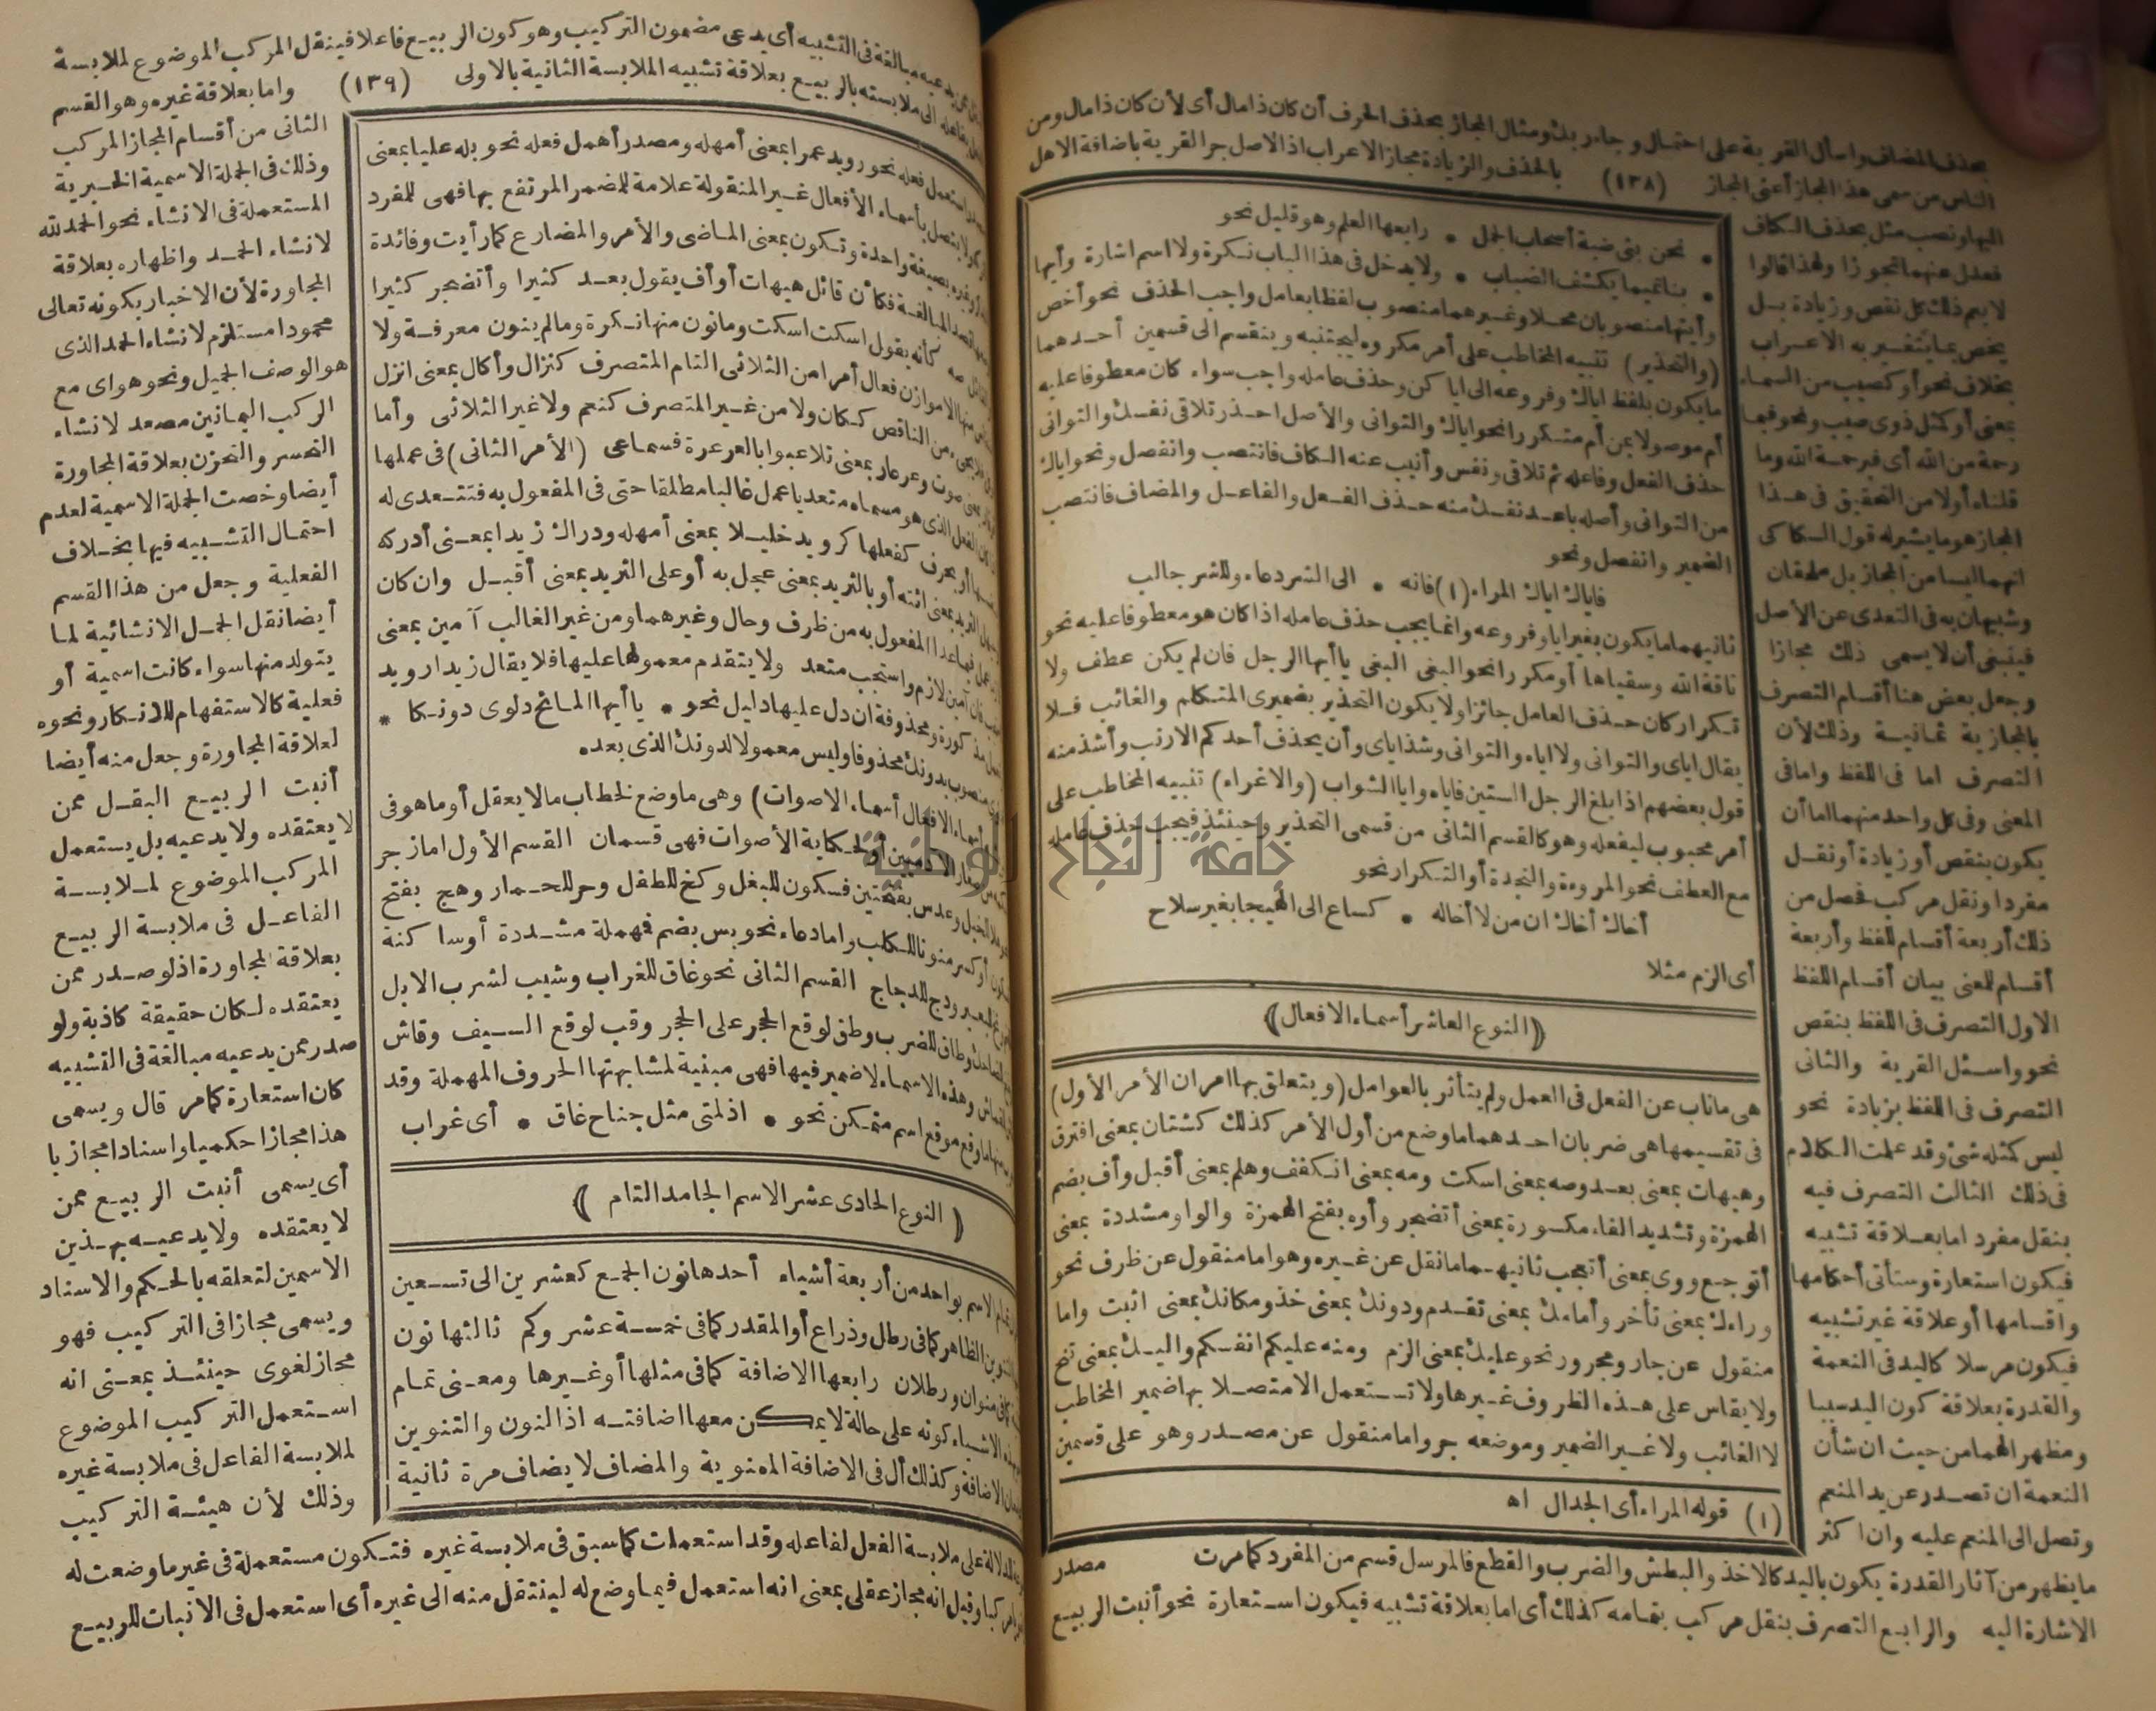 بحذف المضاف واسأل القرية على احتمال وجاء ربك ومثال المجاز بحذف الحرف أن كان ذا مال أى لأن كان ذا مال ومن
الناس من سمى هذا المجاز أعنى المجاز (١٣٨) بالحذف والزيادة مجاز الاعراب اذ الاصل جر القرية باضافة الاهل
اليها ونصب مثل بحذف الكاف
فعدل عنهما تجوزا ولهذا قالوا
لا يعم ذلك كل نقص وزيادة بل
يخص بما يتغير به الاعراب
بخلاف نحو أو كصيب من السماء
بمعنى أو كمثل ذوى صيب ونحو فبما
رحمة من الله أى فبرحمة الله وما
قلناه أولا من التحقيق فى هذا
المجاز هو ما يشير له قول السكاكى
انهما ليسا من المجاز بل ملحقان
وشبيهان به فى التعدى عن الأصل
فينبغى أن لا يسمى ذلك مجازا
وجعل بعض هنا أقسام التصرف
بالمجازية ثمانية وذلك لأن
التصرف اما فى اللفظ واما فى
المعنى وفى كل واحد منهما اما أن
يكون بنقص أو زيادة أو نقل
مفرد أو نقل مركب فحصل من
ذلك أربعة أقسام للفظ وأربعة
أقسام للمعنى بيان أقسام اللفظ
الاول التصرف فى اللفظ بنقص
نحو واسئل القرية والثانى
التصرف فى اللفظ بزيادة نحو
ليس كمثله شئ وقد علمت الكلام
فى ذلك الثالث التصرف فيه
بنقل مفرد اما بعلاقة تشبيه
فيكون استعارة وستأتى أحكامها
واقسامها أو علاقة غير تشبيه
فيكون مرسلا كاليد فى النعمة
والقدرة بعلاقة كون اليد سببا
ومظهر الهما من حيث ان شأن
النعمة ان تصدر عن يد المنعم
وتصل الى المنعم عليه وان اكثر
ما يظهر من آثار القدرة يكون باليد كالاخذ والبطش والضرب والقطع فالمرسل قسم من المفرد كما مرت
الاشارة اليه والرابع التصرف بنقل مركب بتمامه كذلك أى اما بعلاقة تشبيه فيكون استعارة نحو أنبت الربيع
* نحن بنى ضبة أصحاب الجمل * رابعها العلم وهو قليل نحو
* بنا تميما يكشف الضباب * ولا يدخل فى هذا الباب نكرة ولا اسم اشارة وأيها
وأيتها منصوبان محلا وغيرهما منصوب لفظا بعامل واجب الحذف نحو أخص
(والتحذير) تنبيه المخاطب على أمر مكروه ليجتنبه وينقسم الى قسمين أحدهما
ما يكون بلفظ اياك وفروعه الى ايا كن وحذف عامله واجب سواء كان معطوفا عليه
أم موصولا بمن أم متكررا نحو اياك والتوانى والأصل احذر تلاقى نفسك والتوانى
حذف الفعل وفاعله ثم تلاقى ونفس وأنيب عنه الكاف فانتصب وانفصل ونحو اياك
من التوانى وأصله باعد نفسك منه حذف الفعل والفاعل والمضاف فانتصب
الضمير وانفصل ونحو
فاياك اياك المراء (١) فانه * الى الشر دعاء وللشر جالب
ثانيهما ما يكون بغير ايا وفروعه وانما يجب حذف عامله اذا كان هو معطوفا عليه نحو
ناقة الله وسقياها أو مكررا نحو البغى البغى يا أيها الرجل فان لم يكن عطف ولا
تكرار كان حذف العامل جائزا ولا يكون التحذير بضميرى المتكلم والغائب فلا
يقال اياى والتوانى ولا اياه والتوانى وشذ اياى وأن يحذف أحدكم الارنب وأشذ منه
قول بعضهم اذا بلغ الرجل الستين فاياه وايا الشواب (والاغراء) تنبيه المخاطب على
أمر محبوب ليفعله وهو كالقسم الثانى من قسمى التحذير وحينئذ فيجب حذف عامله
مع العطف نحو المروءة والنجدة أو التكرار نحو
أخاك أخاك ان من لا أخاله * كساع الى الهيجا بغير سلاح
أى الزم مثلا
﴿النوع العاشر أسماء الافعال﴾
هى ما ناب عن الفعل فى العمل ولم يتأثر بالعوامل (ويتعلق بها امران الأمر الأول)
فى تقسيمها هى ضربان احدهما ما وضع من أول الأمر كذلك كشتان بمعنى افترق
وهيهات بمعنى بعد وصه بمعنى اسكت ومه بمعنى انكفف وهلم بمعنى أقبل وأف بضم
الهمزة وتشديد الفاء مكسورة بمعنى أتضجر وأوه بفتح الهمزة والواو مشددة بمعنى
أتوجع ووى بمعنى أتعجب ثانيهما ما نقل عن غيره وهو اما منقول عن ظرف نحو
وراءك بمعنى تأخر وأمامك بمعنى تقدم ودونك بمعنى خذ ومكانك بمعنى اثبت واما
منقول عن جار ومجرور نحو عليك بمعنى الزم ومنه عليكم انفسكم واليك بمعنى تنح
ولا يقاس على هذه الظروف غيرها ولا تستعمل الا متصلا بها ضمير المخاطب
لا الغائب ولا غير الضمير وموضعه جر واما منقول عن مصدر وهو على قسمين
(١) قوله المراء أى الجدال اه
مصدر
يدعيه مبالغة فى التشبيه أى يدعى مضمون التركيب وهو كون الربيع فاعلا فينقل المركب الموضوع لملابسة
فاعله الى ملابسته بالربيع بعلاقة تشبيه الملابسة الثانية بالاولى (١٣٩) واما بعلاقة غيره وهو القسم
الثانى من أقسام المجاز المركب
وذلك فى الجملة الاسمية الخبرية
المستعملة فى الانشاء نحو الحمد لله
لانشاء الحمد واظهاره بعلاقة
المجاورة لأن الاخبار بكونه تعالى
محمودا مستلزم لانشاء الحمد الذى
هو الوصف الجميل ونحو هواى مع
الركب اليمانين مصعد لانشاء
التحسر والتحزن بعلاقة المجاورة
أيضا وخصت الجملة الاسمية لعدم
احتمال التشبيه فيها بخلاف
الفعلية وجعل من هذا القسم
أيضا نقل الجمل الانشائية لما
يتولد منها سواء كانت اسمية أو
فعلية كالاستفهام للانكار ونحوه
لعلاقة المجاورة وجعل منه أيضا
أنبت الربيع البقل ممن
لا يعتقده ولا يدعيه بل يستعمل
المركب الموضوع لملابسة
الفاعل فى ملابسة الربيع
بعلاقة المجاورة اذ لو صدر ممن
يعتقده لكان حقيقة كاذبة ولو
صدر ممن يدعيه مبالغة فى التشبيه
كان استعارة كما مر قال ويسمى
هذا مجازا حكميا واسنادا مجازيا
أى يسمى أنبت الربيع ممن
لا يعتقده ولا يدعيه بهذين
الاسمين لتعلقه بالحكم والاسناد
ويسمى مجازا فى التركيب فهو
مجاز لغوى حينئذ بمعنى انه
استعمل التركيب الموضوع
لملابسة الفاعل فى ملابسة غيره
وذلك لأن هيئة التركيب
الدلالة على ملابسة الفعل لفاعله وقد استعملت كما سبق فى ملابسة غيره فتكون مستعملة فى غير ما وضعت له
مركبا وقيل انه مجاز عقلى بمعنى انه استعمل فيما وضع له لينتقل منه الى غيره أى استعمل فى الانبات للربيع
استعمل فعله نحو رويد عمرا بمعنى أمهله ومصدر أهمل فعله نحو بله عليا بمعنى
ولا يتصل بأسماء الأفعال غير المنقولة علامة للمضمر المرتفع بها فهى للمفرد
وغيره بصيغة واحدة وتكون بمعنى الماضى والأمر والمضارع كما رأيت وفائدة
قصد المبالغة فكأن قائل هيهات أو أف يقول بعد كثيرا وأتضجر كثيرا
صه كأنه يقول اسكت اسكت وما نون منها نكرة وما لم ينون معرفة ولا
منها الا موازن فعال أمرا من الثلاثى التام المتصرف كنزال وأكال بمعنى انزل
من الناقص ككان ولا من غير المتصرف كنعم ولا غير الثلاثى وأما
صوت وعرعار بمعنى تلاعبوا بالعرعرة فسماعى (الأمر الثانى) فى عملها
الفعل الذى هو مسماه متعديا عمل غالبا مطلقا حتى فى المفعول به فتتعدى له
أو بحرف كفعلها كرويد خليلا بمعنى أمهله ودراك زيدا بمعنى أدركه
الثريد بمعنى ائته أو بالثريد بمعنى عجل به أو على الثريد بمعنى أقبل وان كان
فيما عدا المفعول به من ظرف وحال وغيرهما ومن غير الغالب آمين بمعنى
فان آمين لازم واستجب متعد ولا يتقدم معمولها عليها فلا يقال زيدا رويد
مذكورة ومحذوفة ان دل عليها دليل نحو * يا أيها المائح دلوى دونكا *
منصوب بدونك محذوفا وليس معمولا لدونك الذى بعده
أسماء الافعال أسماء الاصوات) وهى ما وضع لخطاب ما لا يعقل أو ما هو فى
صغار الآدميين أو لحكاية الأصوات فهى قسمان القسم الأول اما زجر
هلا للخيل وعدس بفتحتين فسكون للبغل وكخ للطفل وحر للحمار وهج بفتح
أو كسر منونا للكلب واما دعاء نحو بس بضم فهملة مشددة أو ساكنة
للبعير ودج للدجاج القسم الثانى نحو غاق للغراب وشيب لشرب الابل
للضاحك وطاق للضرب وطق لوقع الحجر على الحجر وقب لوقع السيف وقاش
وهذه الاسماء لا ضمير فيها فهى مبنية لمشابهتها الحروف المهملة وقد
منها ما وقع موقع اسم متمكن نحو * اذ لمتى مثل جناح غاق * أى غراب
﴿النوع الحادى عشر الاسم الجامد التام﴾
الاسم بواحد من أربعة أشياء أحدها نون الجمع كعشرين الى تسعين
التنوين الظاهر كما فى رطل وذراع أو المقدر كما فى خمسة عشر وكم ثالثها نون
كما فى منوان ورطلان رابعها الاضافة كما فى مثلها أو غيرها ومعنى تمام
بهذه الاشياء كونه على حالة لا يمكن معها اضافته اذ النون والتنوين
الاضافة وكذلك أل فى الاضافة المعنوية والمضاف لا يضاف مرة ثانية
جامعة النجاح الوطنية